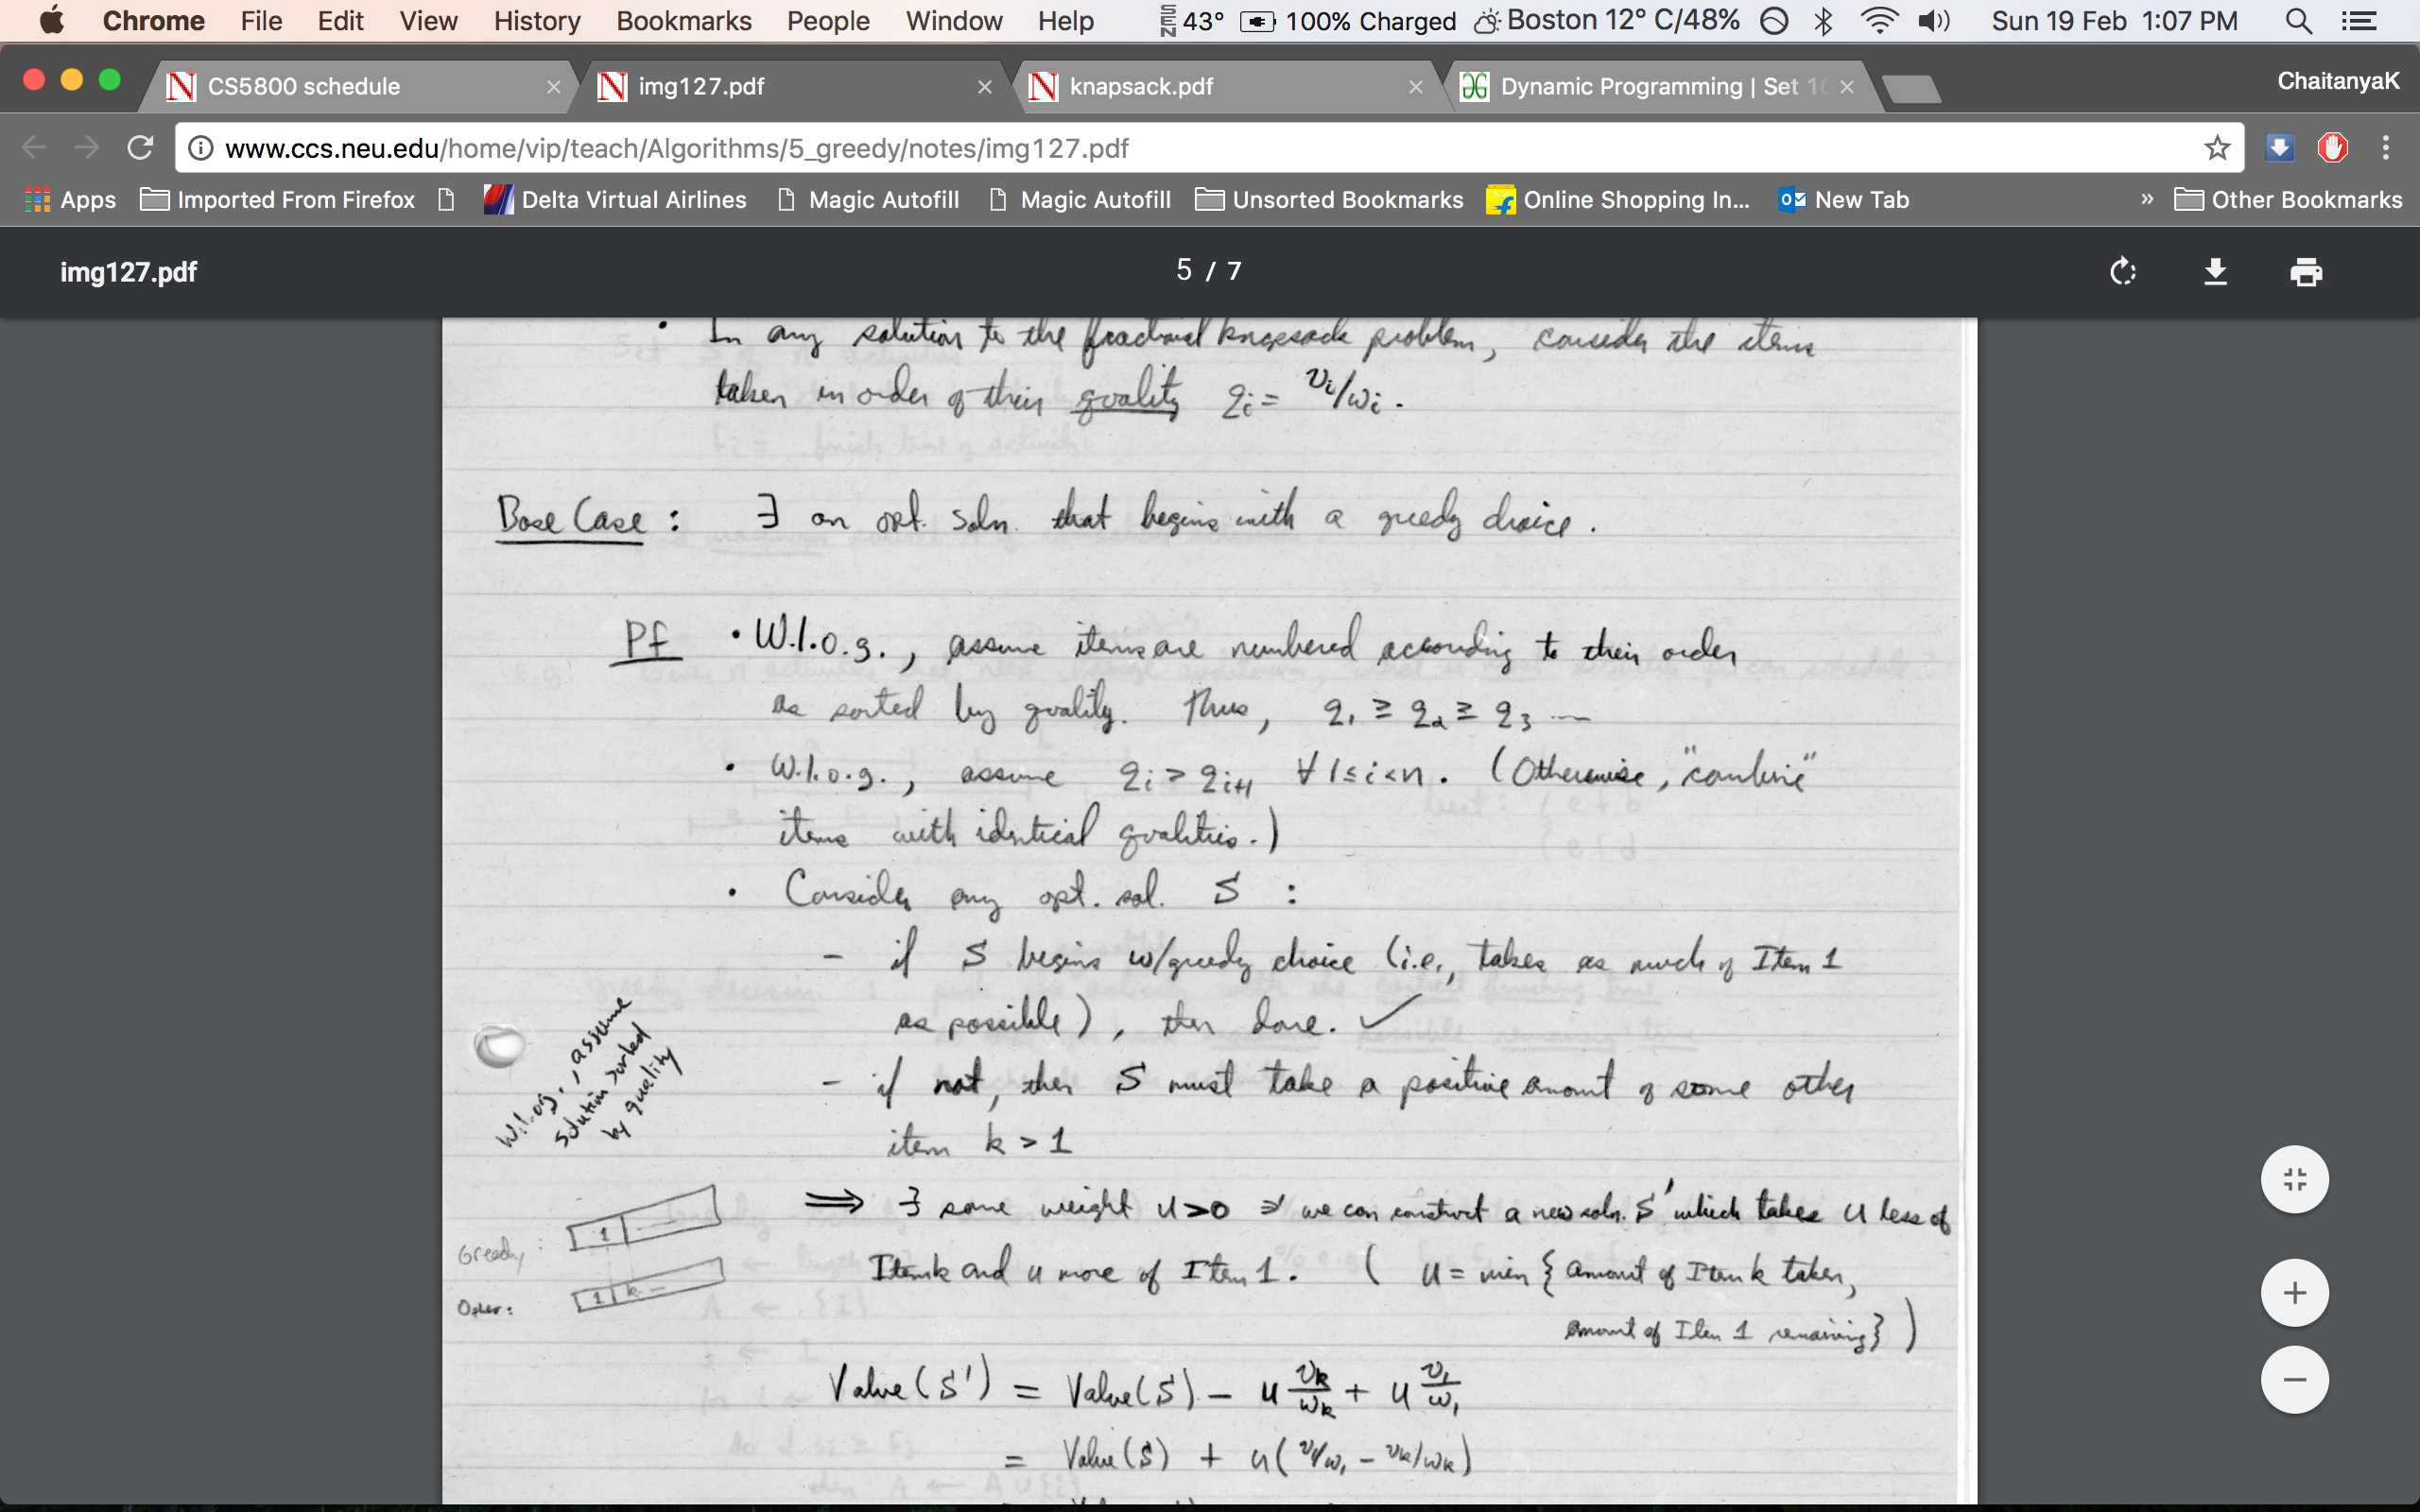 Chrome File Edit View History Bookmarks People Window Help SEN 43° 100% Charged Boston 12° C/48% Sun 19 Feb 1:07 PM
CS5800 schedule img127.pdf knapsack.pdf Dynamic Programming | Set 10 ChaitanyaK
www.ccs.neu.edu/home/vip/teach/Algorithms/5_greedy/notes/img127.pdf
Apps Imported From Firefox Delta Virtual Airlines Magic Autofill Magic Autofill Unsorted Bookmarks Online Shopping In... New Tab » Other Bookmarks
img127.pdf 5 / 7
• In any solution to the fractional knapsack problem, consider the items
taken in order of their quality qi = vi/wi.
Base Case: ∃ an opt. soln. that begins with a greedy choice.
Pf • W.l.o.g., assume items are numbered according to their order
as sorted by quality. Thus, q1 ≥ q2 ≥ q3 ...
• W.l.o.g., assume qi > qi+1 ∀ 1≤i<n. (Otherwise, "combine"
items with identical qualities.)
• Consider any opt. sol. S :
- if S begins w/greedy choice (i.e., takes as much of Item 1
as possible), then done. ✓
- if not, then S must take a positive amount of some other
item k > 1
W.l.o.g., assume
solution sorted
by quality
⟹ ∃ some weight u>0 ∋ we can construct a new soln. S' which takes u less of
Item k and u more of Item 1. ( u = min { amount of Item k taken,
amount of Item 1 remaining} )
Greedy: 1
Other: 1 k
Value(S') = Value(S) - u vk/wk + u v1/w1
= Value(S) + u( v1/w1 - vk/wk)